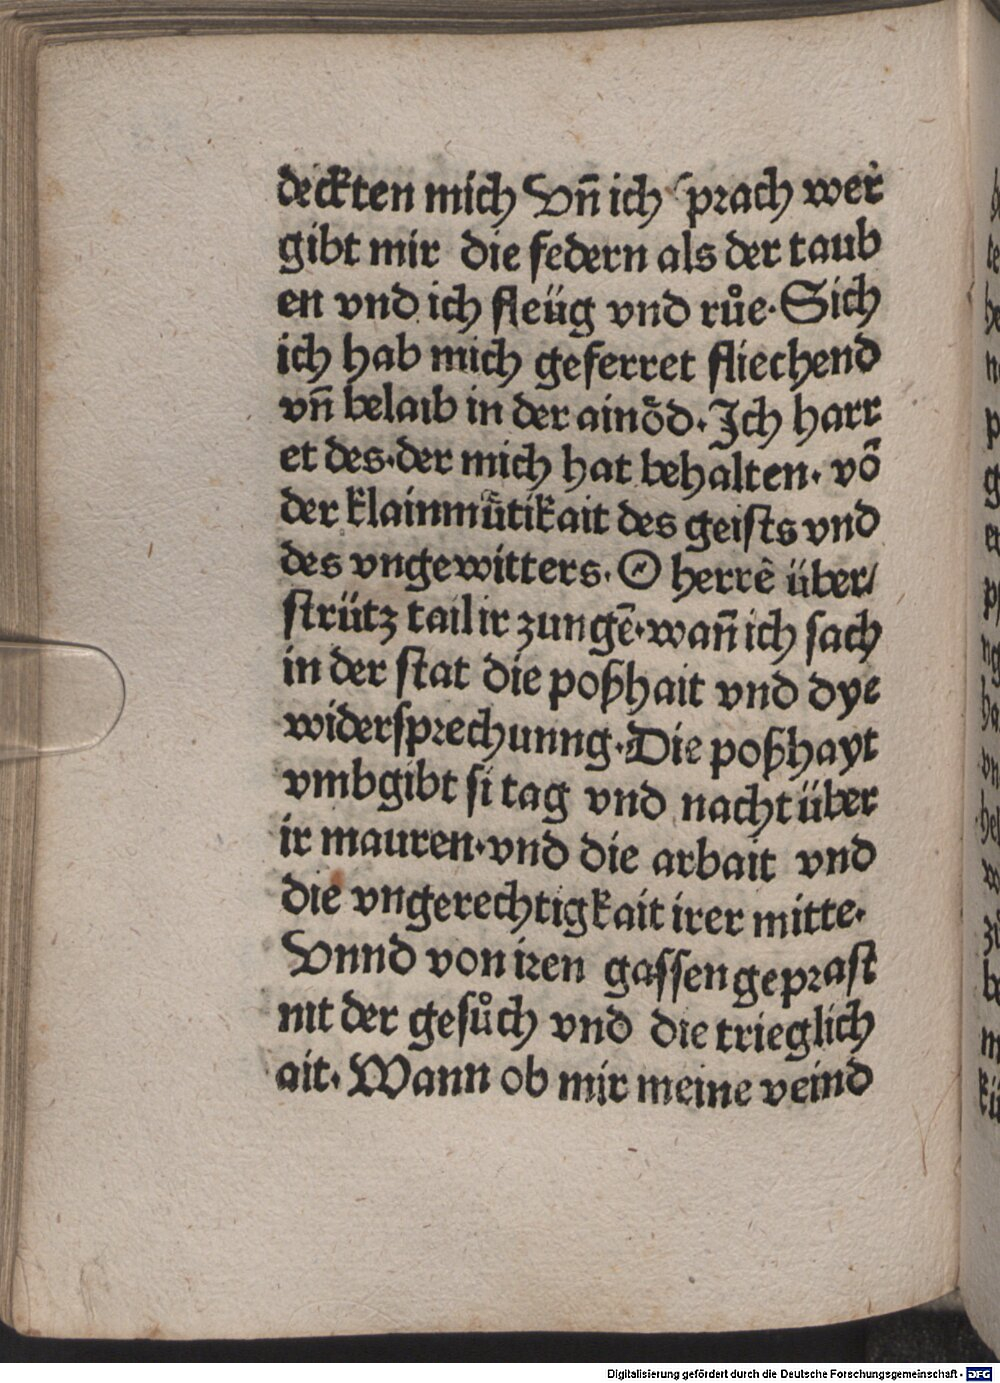 deckten mich Vn̄ ich sprach wer
gibt mir die federn als der taub
en vnd ich fleüg vnd růe· Sich
ich hab mich geferret fliechend
vn̄ belaib in der ainȫd· Ich harr
et des·der mich hat behalten· vō
der klainmůtikait des geists vnd
des vngewitters· O herrē über/
strütz tail ir zungē·wan̄ ich sach
in der stat die poßhait vnd dye
widersprechunng·Die poßhayt
vmbgibt si tag vnd nacht über
ir mauren·vnd die arbait vnd
die vngerechtigkait irer mitte·
Vnnd von iren gassen geprast
nit der gesůch vnd die trieglich
ait· Wann ob mir meine veind
Digitalisierung gefördert durch die Deutsche Forschungsgemeinschaft - DFG